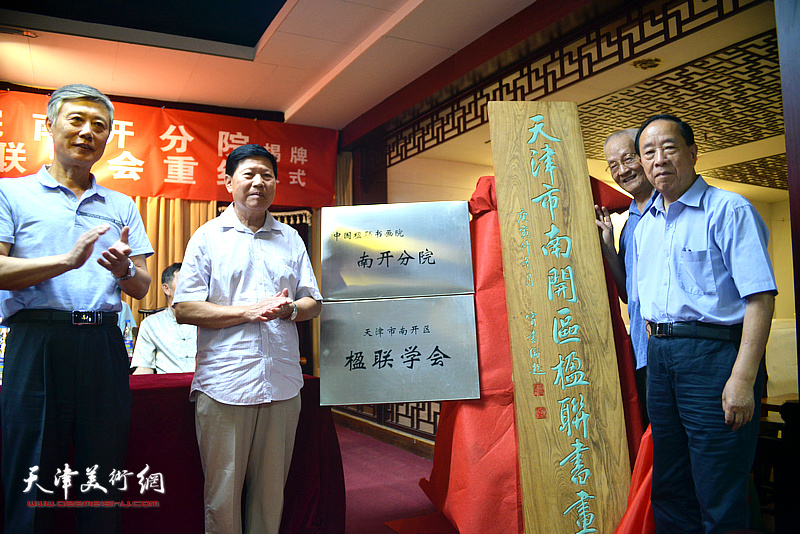 南开分院揭牌
联 会重组 式
中国楹联书画院
南开分院
天津市南开区
楹联学会
天津市南開區楹聯書畫
天津美術網